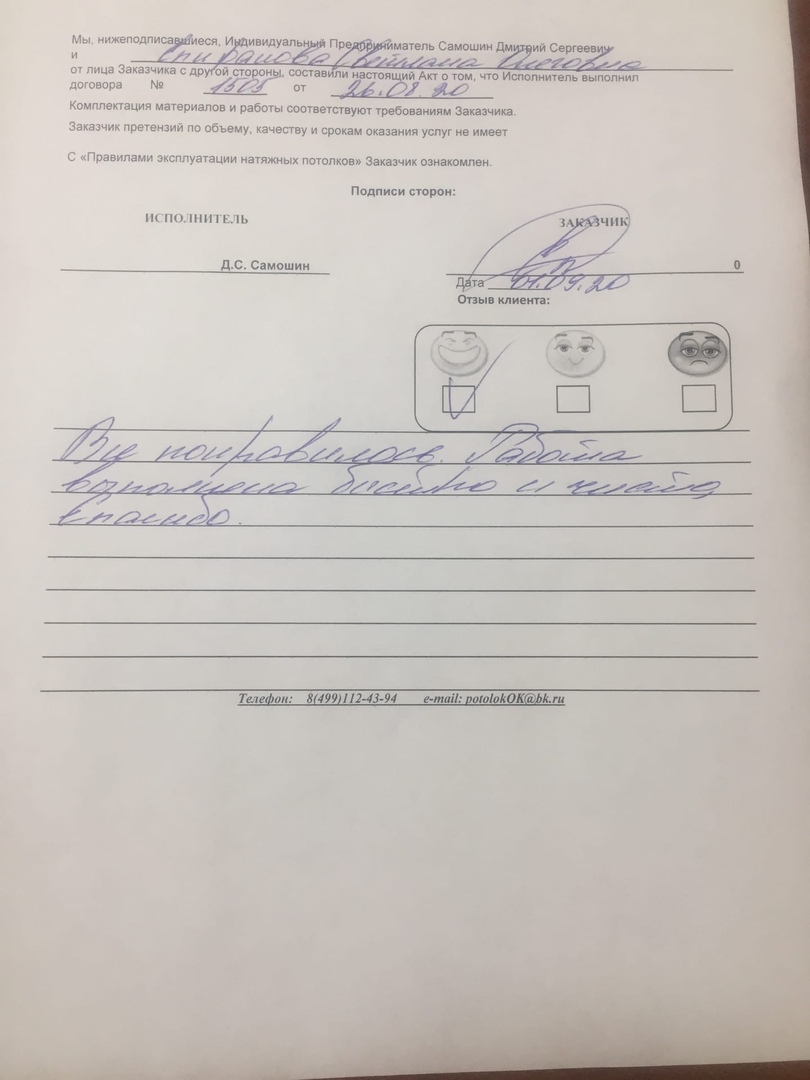 Мы, нижеподписавшиеся, Индивидуальный Предприниматель Самошин Дмитрий Сергеевич
и Светлана Олеговна
от лица Заказчика с другой стороны, составили настоящий Акт о том, что Исполнитель выполнил
договора № 1505 от 26.08.20
Комплектация материалов и работы соответствуют требованиям Заказчика.
Заказчик претензий по объему, качеству и срокам оказания услуг не имеет
С «Правилами эксплуатации натяжных потолков» Заказчик ознакомлен.
Подписи сторон:
ИСПОЛНИТЕЛЬ ЗАКАЗЧИК
Д.С. Самошин 0
Дата 01.09.20
Отзыв клиента:
Все понравилось. Работа
выполнена быстро и чисто,
спасибо.
Телефон: 8(499)112-43-94 e-mail: potolokOK@bk.ru